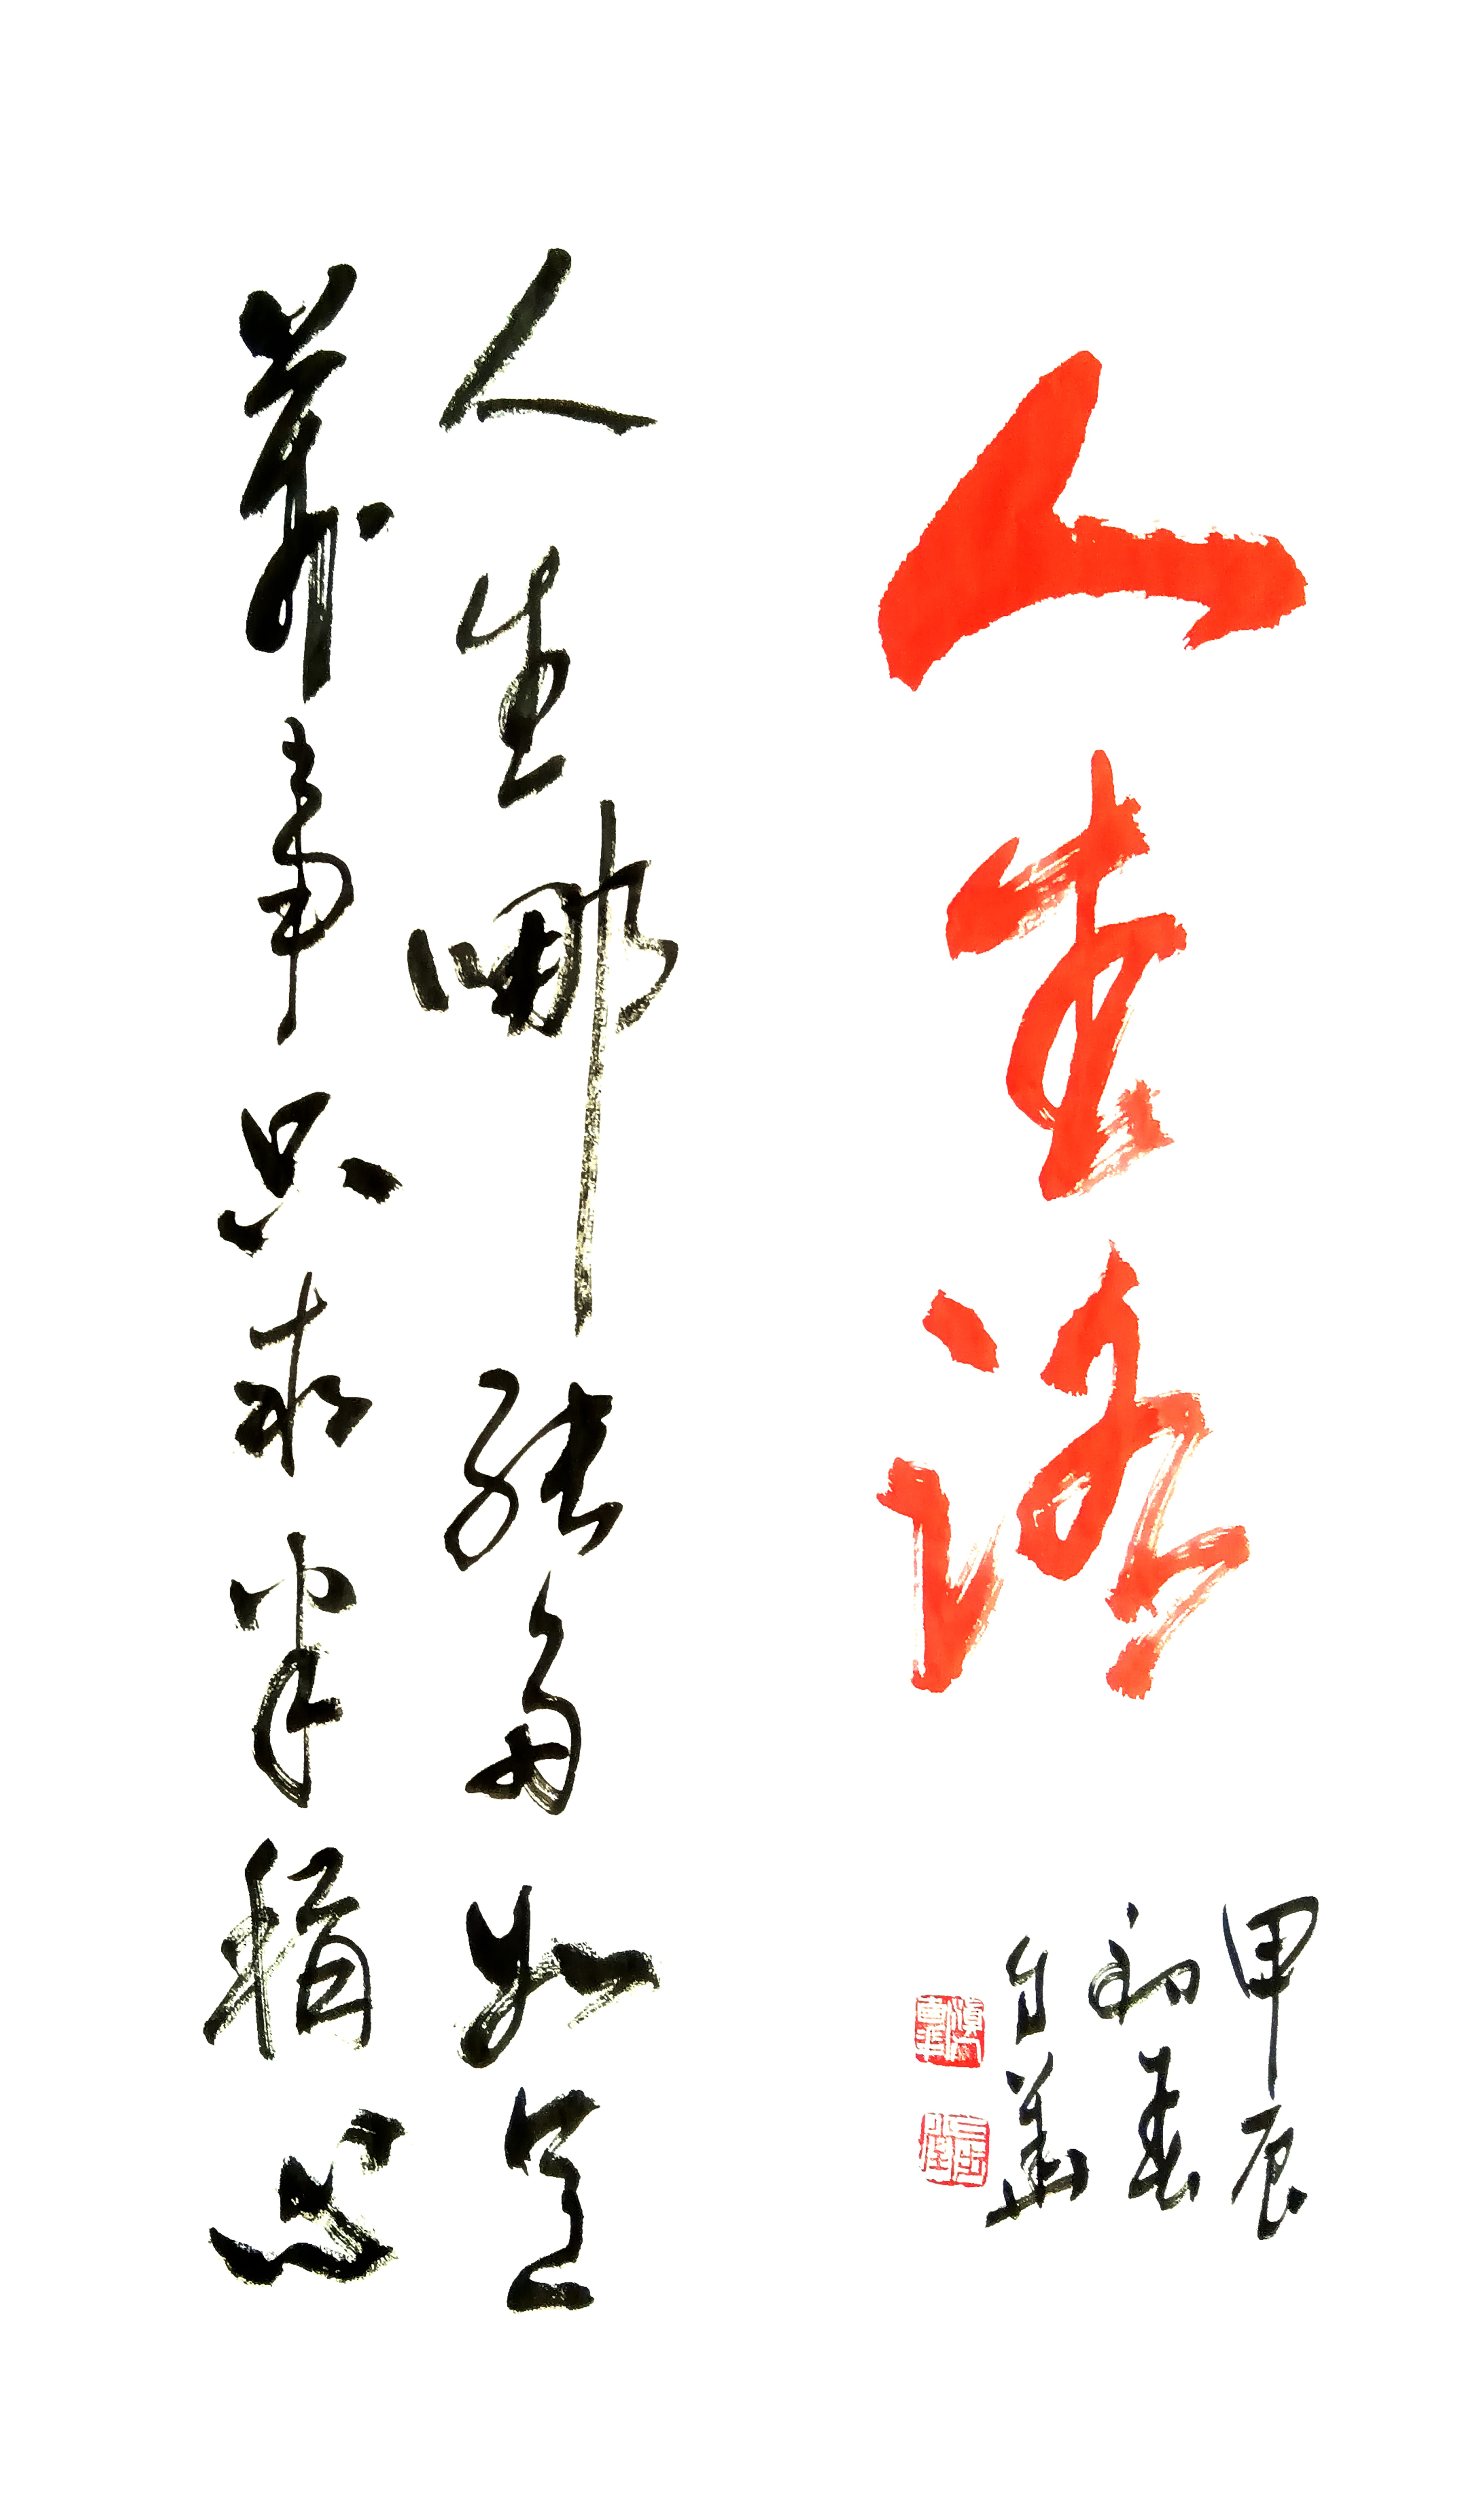 人生路
甲辰
初春
人生哪能多如意
万事只求半称心